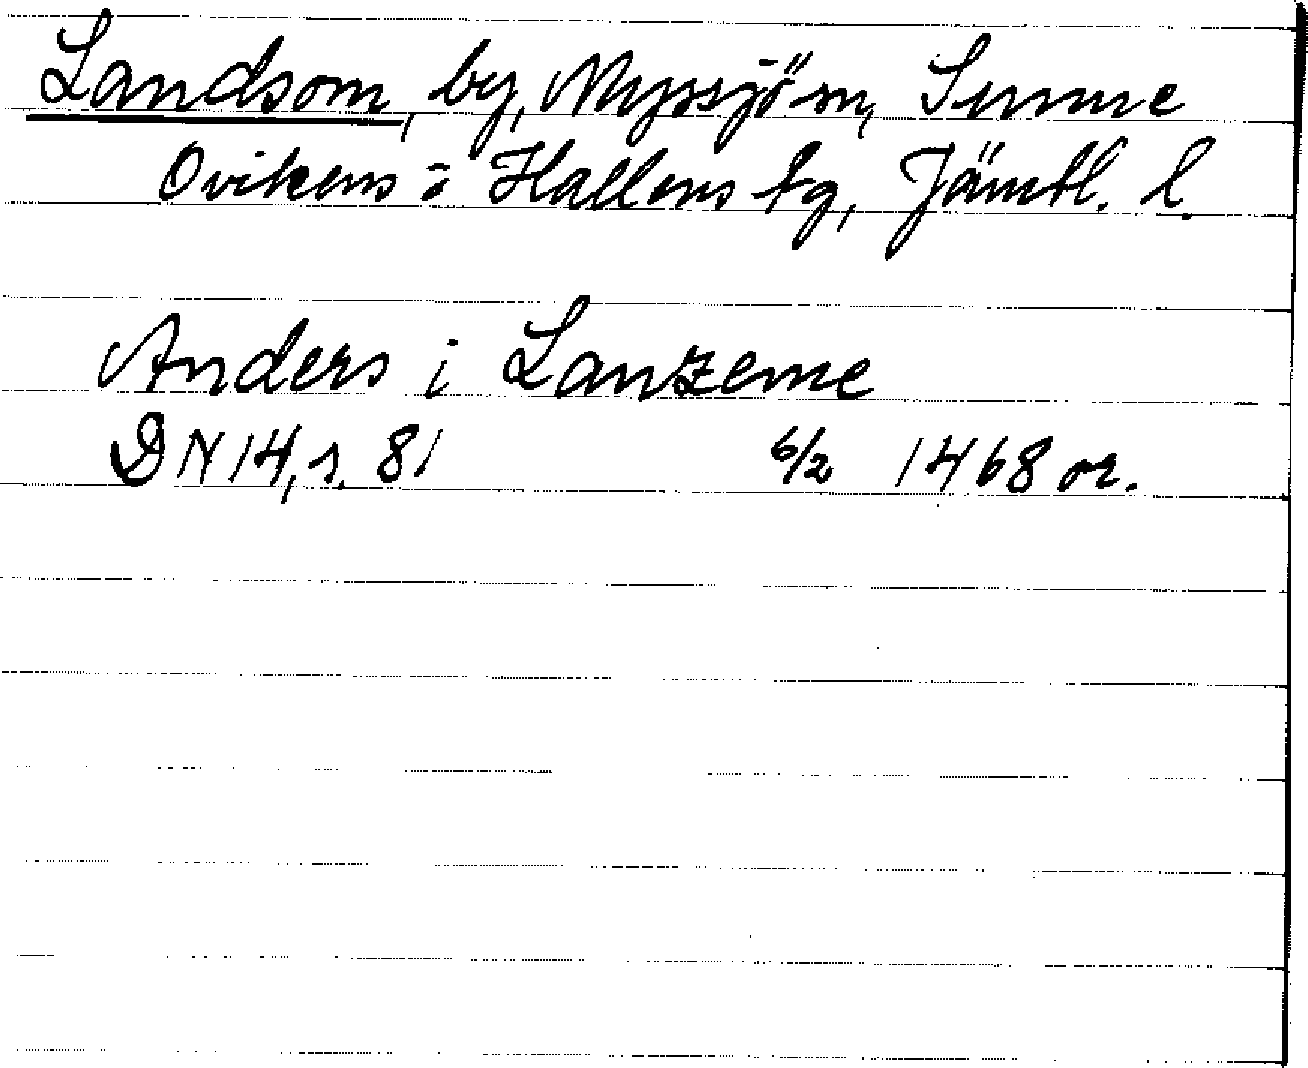 Landsom, by, Myssjö sn, Sunne
Ovikens o Hallens tg, Jämtl. l.
Anders i Lanzeme
DN 14, s. 81 6/2 1468 or.